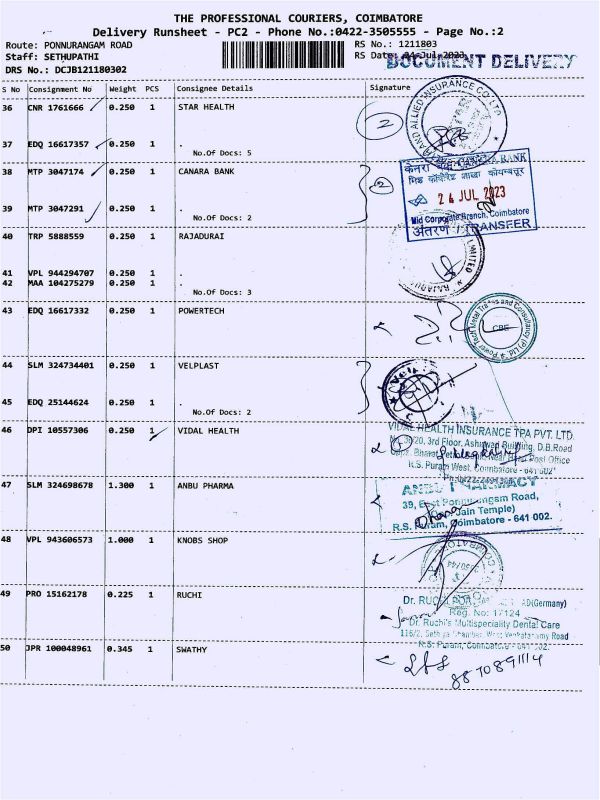 THE PROFESSIONAL COURIERS, COIMBATORE
Delivery Runsheet - PC2 - Phone No.:0422-3505555 - Page No.:2
Route: PONNURANGAM ROAD
RS No.: 1211803
Staff: SETHUPATHI
RS Date: 24-Jul-2023
DOCUMENT DELIVERY
DRS No.: DCJB121180302
S No Consignment No Weight PCS Consignee Details Signature
36 CNR 1761666 0.250 1 STAR HEALTH
2
37 EDQ 16617357 0.250 1 .
No.Of Docs: 5
38 MTP 3047174 0.250 1 CANARA BANK
CANARA BANK
2
24 JUL 2023
39 MTP 3047291 0.250 1 .
No.Of Docs: 2
Mid Corporate Branch, Coimbatore
अंतरण / TRANSFER
40 TRP 5888559 0.250 1 RAJADURAI
LIMITED
41 VPL 944294707 0.250 1 .
42 MAA 104275279 0.250 1 .
No.Of Docs: 3
43 EDQ 16617332 0.250 1 POWERTECH
CBE
44 SLM 324734401 0.250 1 VELPLAST
45 EDQ 25144624 0.250 1 .
No.Of Docs: 2
46 DPI 10557306 0.250 1 VIDAL HEALTH
VIDAL HEALTH INSURANCE TPA PVT. LTD.
3rd Floor, Ashirwad Building, D.B.Road
R.S. Puram West, Coimbatore - 641 002
47 SLM 324698678 1.300 1 ANBU PHARMACY
ANBU PHARMACY
39, East Ponnurangam Road,
Jain Temple)
R.S. Puram, Coimbatore - 641 002.
48 VPL 943606573 1.000 1 KNOBS SHOP
49 PRO 15162178 0.225 1 RUCHI
Reg. No: 17124
Dr. Ruchi's Multispeciality Dental Care
R.S. Puram, Coimbatore - 641 002.
50 JPR 100048961 0.345 1 SWATHY